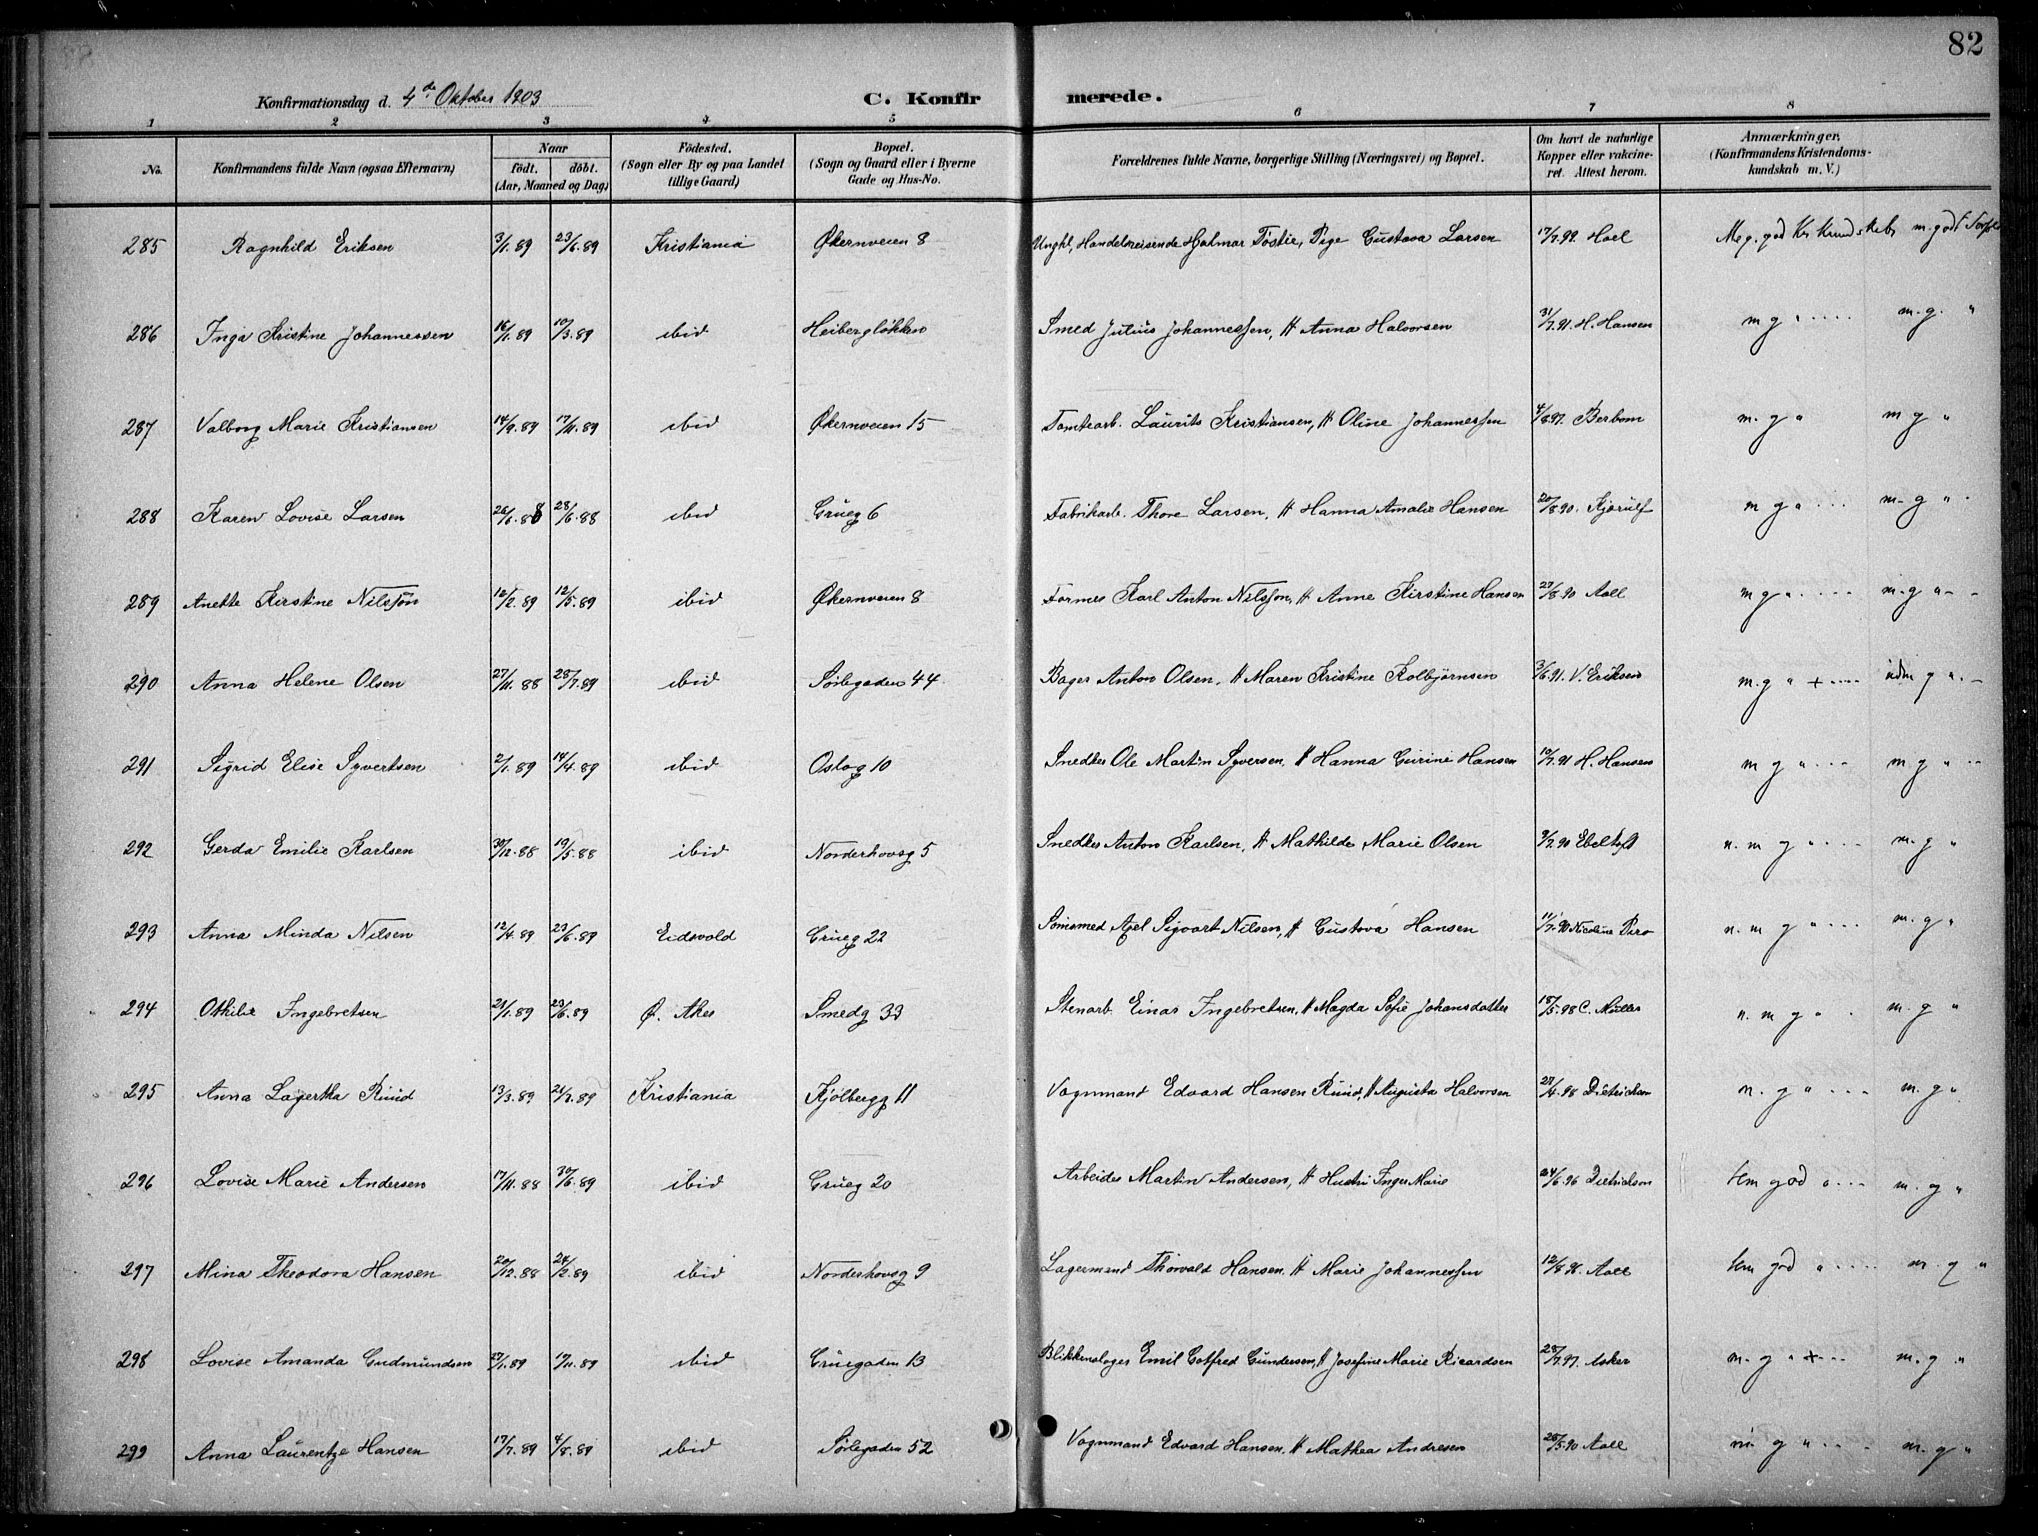 82
Konfirmationsdag d. 4de Oktober 1903 C. Konfir merede.
1 2 3 4 5 6 7 8
No. Konfirmandens fulde Navn (ogsaa Efternavn) Naar født. døbt. (Aar, Maaned og Dag) Fødested. (Sogn eller By og paa Landet tillige Gaard) Bopæl. (Sogn og Gaard eller i Byerne Gade og Hus-No. Forældrenes fulde Navne, borgerlige Stilling (Næringsvei) og Bopæl. Om havt de naturlige Kopper eller vakcineret. Attest herom. Anmærkninger. (Konfirmandens Kristendomskundskab m. V.)
285 Ragnhild Eriksen 3/1.89 23/6.89 Kristiania Økernveien 8 Ungkl, Handelsreisende Hjalmar Tostie, Pige Gustava Larsen 17/7.99. Hoel Meg. god Kr. Kundskab m. godt
286 Inga Kristine Johannessen 16/1.89 10/3.89 ibid Heibergløkken Smed Julius Johannessen, H Anna Halvorsen 31/7.91. H. Hansen m g " m. g. "
287 Valborg Marie Kristiansen 14/9.89 17/11.89 ibid Økernveien 15 Tomtearb. Laurits Kristiansen, H Oline Johannessen 4/8.97. Berbom m. g " m g "
288 Karen Lovise Larsen 26/6.88 28/6.88 ibid Grüeg 6 Fabrikarb. Thore Larsen, H Hanna Amalie Hansen 20/8.90. Kjerulf m g " m- g "
289 Anette Kirstine Nilssøn 12/2.89 12/5.89 ibid Økernveien 8 Former Karl Anton Nilsson, H Anne Kirstine Hansen 27/8.90 Aall m g " m. g "
290 Anna Helene Olsen 27/11.88 28/7.89 ibid Sørlegaden 44. Bager Anton Olsen, H Maren Kristine Kolbjørnsen 3/6.91. V. Eriksen m. g " + udm g "
291 Sigrid Elise Syvertsen 2/1.89 14/4.89 ibid Oslog 10 Snedker Ole Martin Syversen, H Hanna Gurine Hansen 10/7.91 H. Hansen m g " m g "
292 Gerda Emilie Karlsen 30/12.88 19/5.88 ibid Norderhovsg 5 Snedker Anton Karlsen, H Mathilde Marie Olsen 9/7.90 Ebeltoft n. m g " m. g "
293 Anna Minda Nilsen 12/4.89 23/6.89 Eidsvold Grüeg 22 Sømsmed Axel Sigvart Nilsen, H Gustava Hansen 11/7.90 Nicoline Piro n. m g " m. g "
294 Othilie Ingebretsen 21/1.89 23/6.89 Ø. Aker Smedg 33 Stenarb. Einar Ingebretsen, H Magda Sofie Johansdatter 18/5.98 C. Müller n. m g " m. g "
295 Anna Lagertha Ruud 13/3.89 21/7.89 Kristiania Kjølbergg 11 Vognmand Edvard Hansen Ruud, H Augusta Halvorsen 27/4.98 Dietrichson n. g " m. g "
296 Lovise Marie Andersen 17/11.88 30/6.89 ibid Grüeg 20 Arbeider Martin Andersen, H Hustru Inger Marie 24/6.96 Dietrichson tem god " m. g "
297 Mina Theodora Hansen 20/12.88 24/2.89 ibid Norderhovsg 9 Lagermand Thorvald Hansen, H Marie Johannessen 12/8.96. Aall tem god " m. g "
298 Lovise Amanda Gudmundsen 27/1.89 17/11.89 ibid Grüegaden 13 Blikkenslager Emil Gotfred Gundersen, H Josefine Marie Ricardsen 28/7.97. Asker m. g " + m. g "
299 Anna Laurentze Hansen 17/7.89 4/8.89 ibid Sørlegaden 52 Vognmand Edvard Hansen, H Mathea Andresen 28/5.90 Aall m. g " m. g "